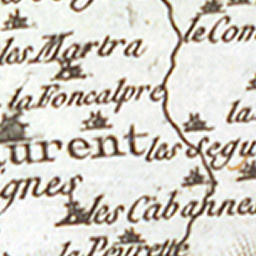 les Martra
le Com
la Foncalpre
la
urent
les Segu
ignes
les Cabannes
la Peyrette